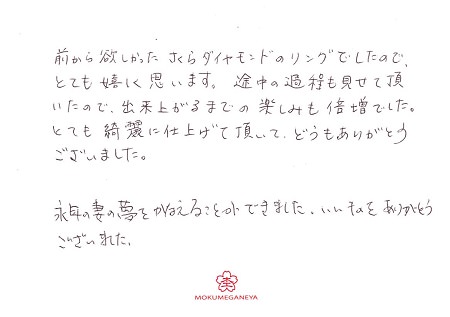 前から欲しかった さくらダイヤモンドのリングでしたので、
とても嬉しく思います。途中の過程も見せて頂
いたので、出来上がるまでの楽しみも倍増でした。
とても綺麗に仕上げて頂いて、どうもありがとう
ございました。
永年の妻の夢をかなえることができました。いいものをありがとう
ございました。
MOKUMEGANEYA